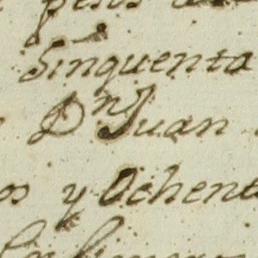 pesos
Sinquenta
Dn Juan
os y Ochent